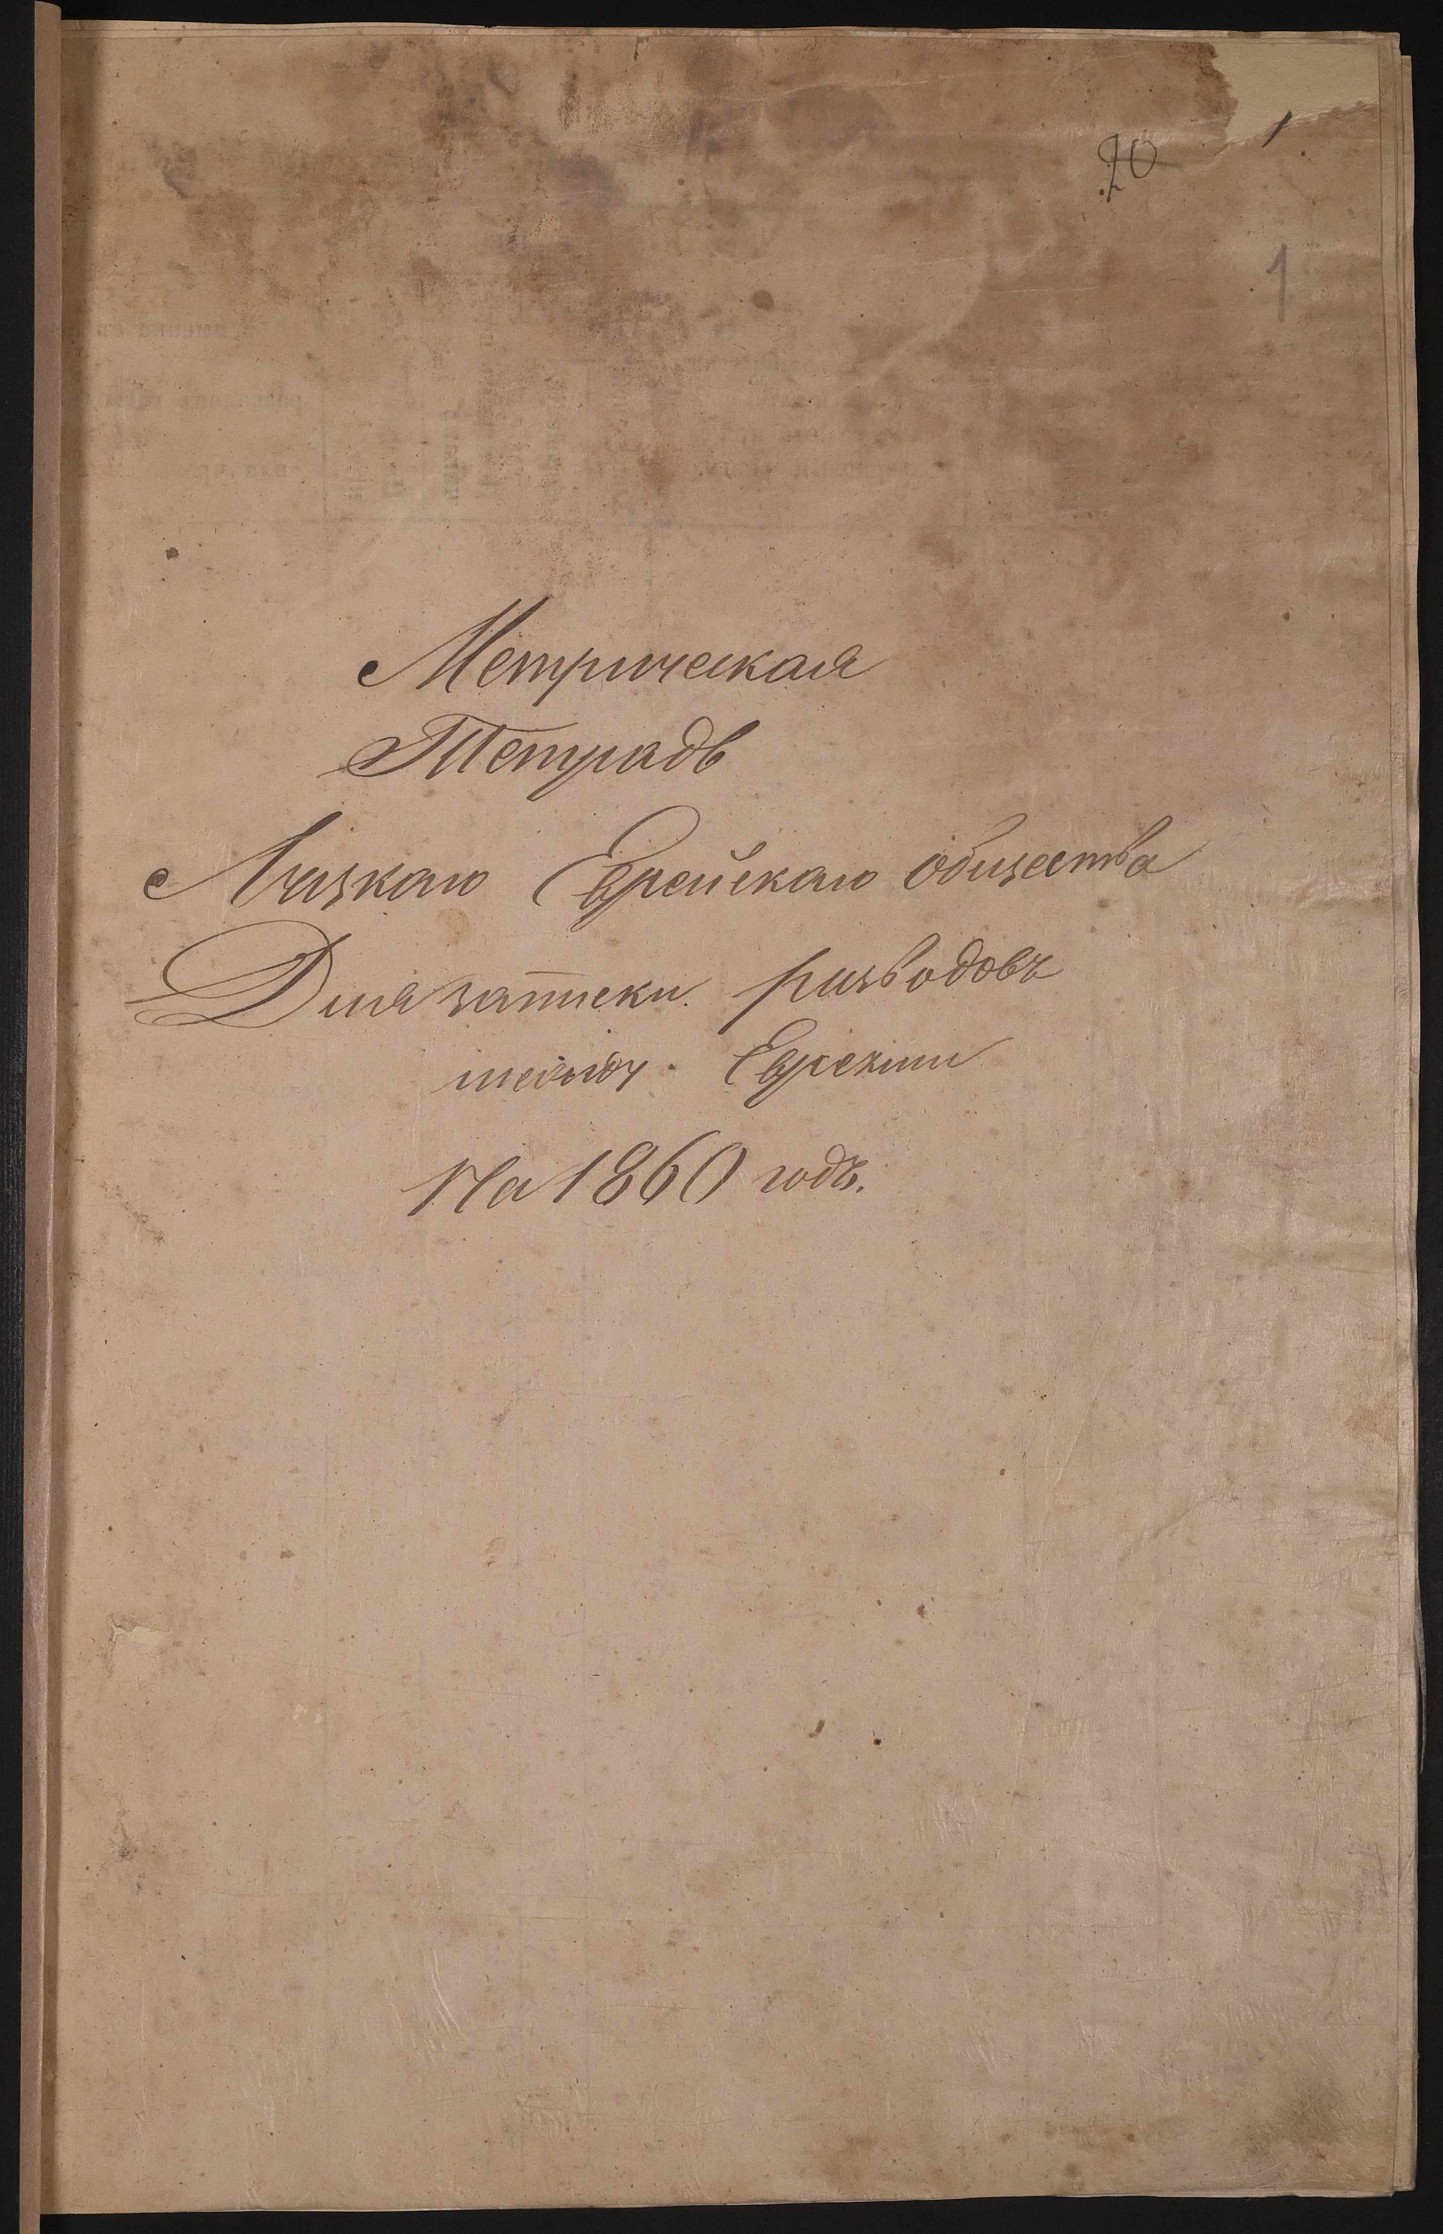 20
1
Метрическая
Тетрадь
Луцкаго Еврейскаго общества
Для записки разводовъ
между Евреями
На 1860 годъ.